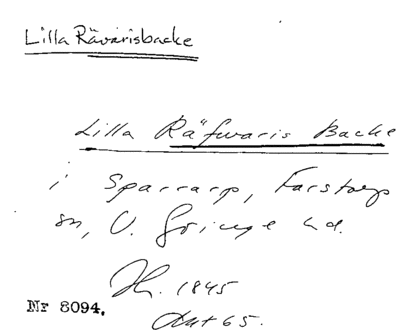 Lilla Rävarisbacke
Lilla Räfwaris Backe
i Sparrarp, Farstorp
sn, V. Göinge hd.
1845
Nr 8094.
Akt 65.